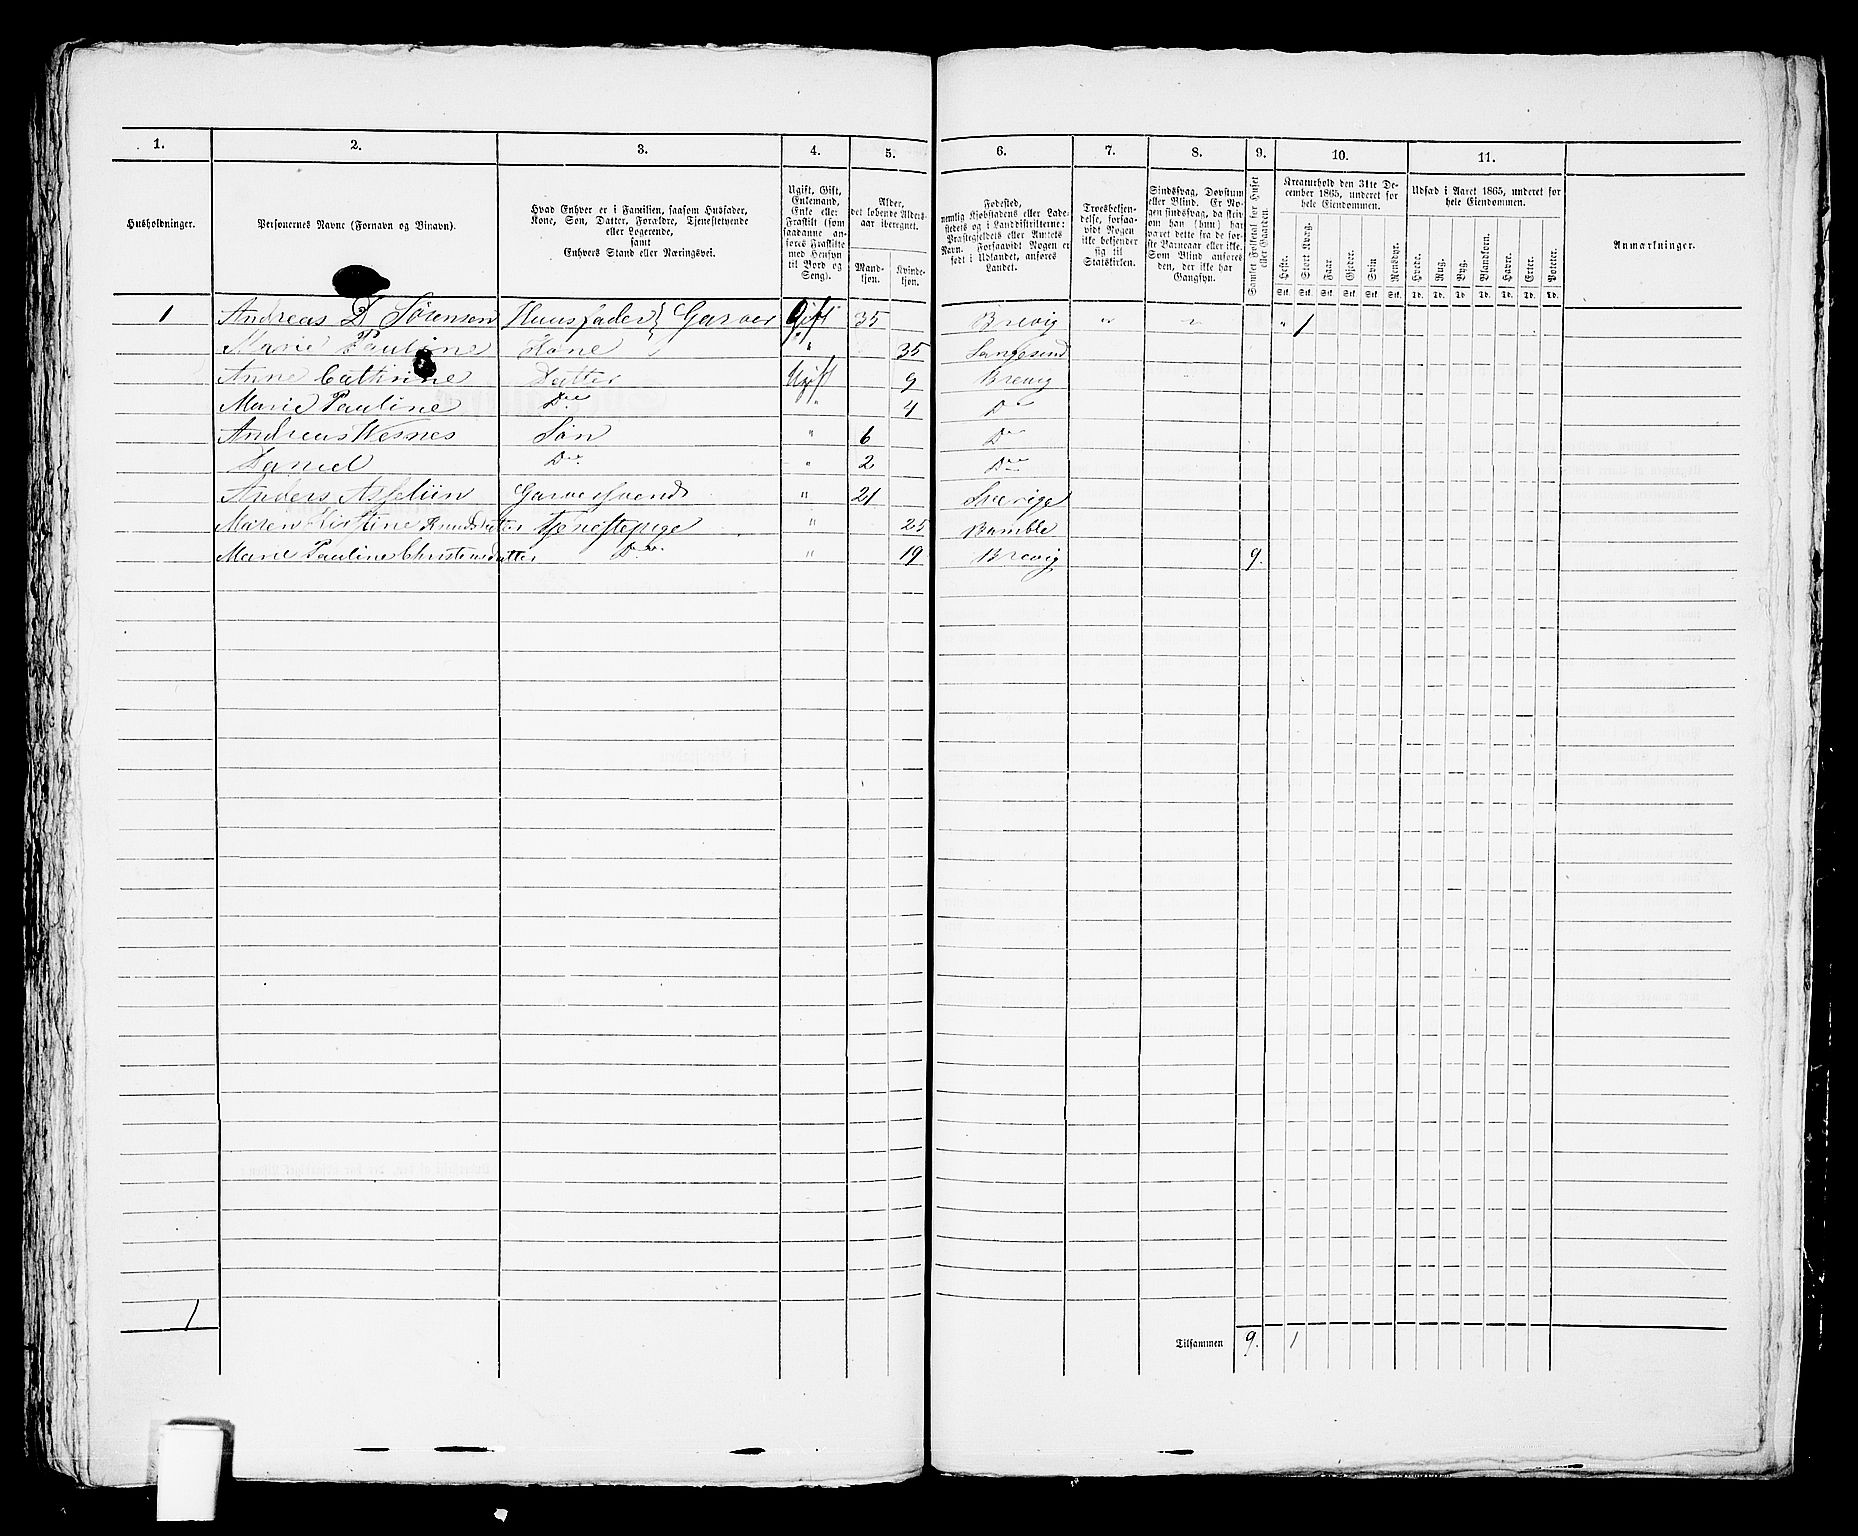 1. 2. 3. 4. 5. 6. 7. 8. 9. 10. 11.
Husholdninger.
Personernes Navne (Fornavn og Binavn).
Hvad Enhver er i Familien, saasom Husfader,
Kone, Søn, Datter, Forældre, Tjenestetyende
eller Logerende,
samt
Enhvers Stand eller Næringsvei.
Ugift, Gift,
Enkemand,
Enke eller
Fraskilt (som
saadanne an-
føres Fraskilte
med Hensyn
til Bord og
Seng).
Alder,
det løbende Alders-
aar iberegnet.
Mand-
kjøn.
Kvinde-
kjøn.
Fødested,
nemlig Kjøbstadens eller Lade-
stedets og i Landdistrikterne:
Præstegjeldets eller Annexets
Navn. Forsaavidt Nogen er
født i Udlandet, anføres
Landet.
Troesbekjen-
delse, forsaa-
vidt Nogen
ikke bekjender
sig til
Statskirken.
Sindssvag, Døvstum
eller Blind. Er No-
gen sindssvag, da skriv
om han (hun) har
været dette fra de før-
ste Barneaar eller ikke.
Som Blind anføres
den, der ikke har
Gangsyn.
Samlet Folketal for Huset
eller Gaarden.
Kreaturhold den 31te De-
cember 1865, underet for
hele Eiendommen.
Heste. Stort Kvæg. Faar Gjeder. Svin Rensdyr.
Stk. Stk. Stk. Stk. Stk. Stk.
Udsæd i Aaret 1865, underet for
hele Eiendommen.
Hvede. Rug. Byg. Blandkorn. Havre. Erter. Poteter.
Td. Td. Td. Td. Td. Td. Td.
Anmærkninger.
1 Andreas D Sørensen Huusfader } Garver Gift 35 Brevig " " " 1
Marie Pauline Kone " 35 Langesund
Anne Cathrine Datter Ugift 9 Brevig
Marie Pauline Do " 4 Do
Andreas Søn " 6 Do
Daniel Do " 2 Do
Anders Garversvend " 21 Sverige
Maren Kirstine Knudsdatter Tjenestepige " 25 Bamble
Marie Pauline Christensdatter Do " 19 Brevig 9.
1
Tilsammen 9. 1